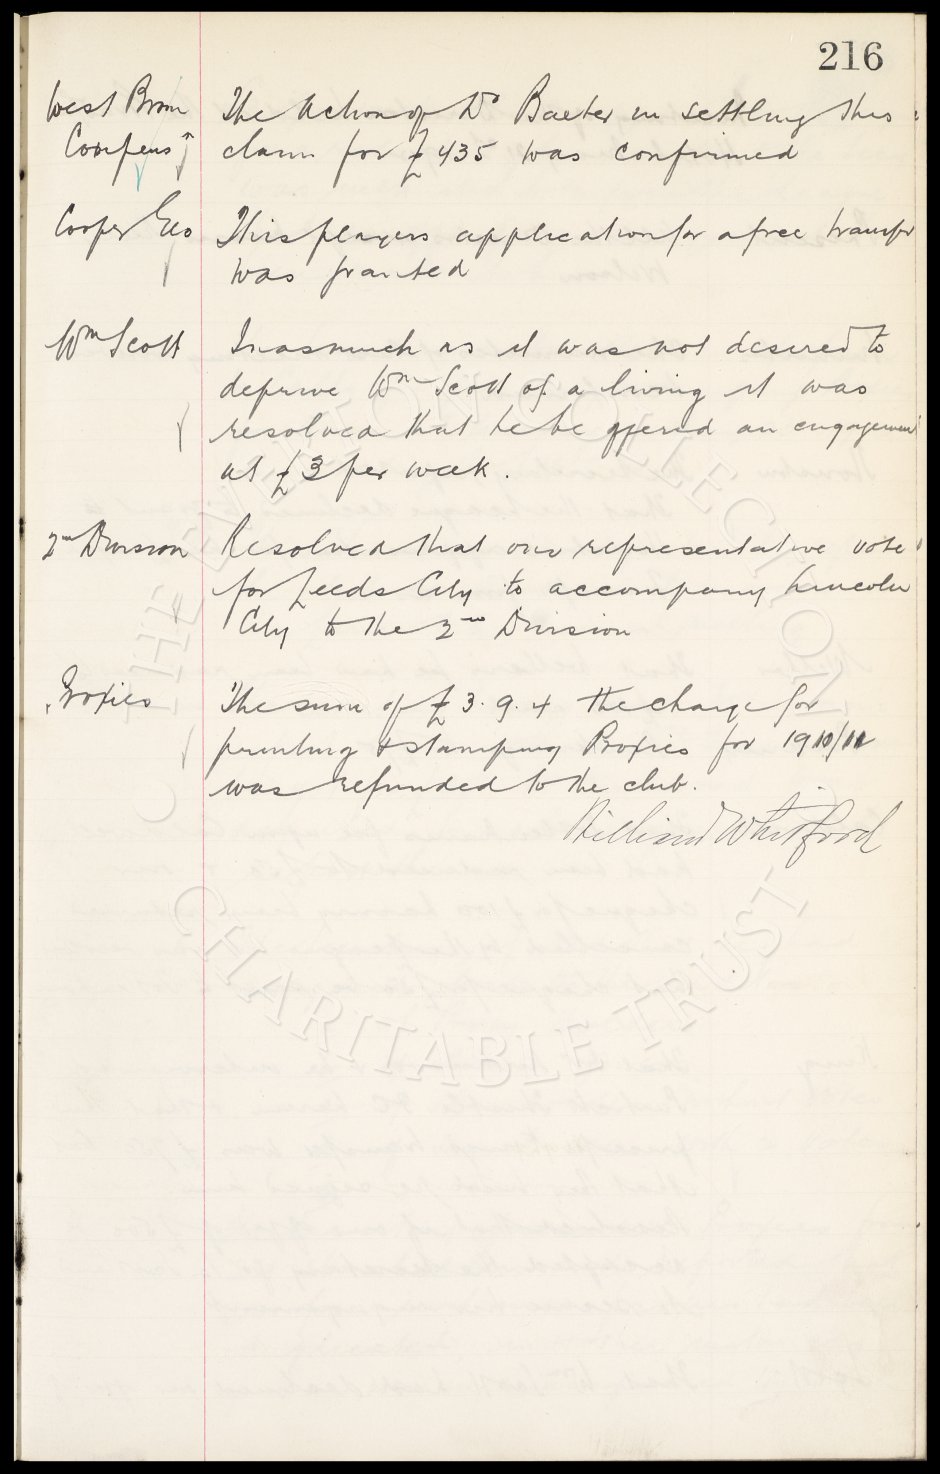 216
West Brom The Action of Dr Baxter in settling this
Compens n claim for £435 was confirmed
Cooper Geo This players application for a free transfer
was granted
Wm Scott Inasmuch as it was not desired to
deprive Wm Scott of a living it was
resolved that he be offered an engagement
at £3 per week.
2nd Division Resolved that our representative vote
for Leeds City to accompany Lincoln
City to the 2nd Division
Proxies The sum of £3.9.4 the charge for
printing & stamping Proxies for 1910/11
was refunded to the club.
William Whitford
THE EVERTON COLLECTION
CHARITABLE TRUST